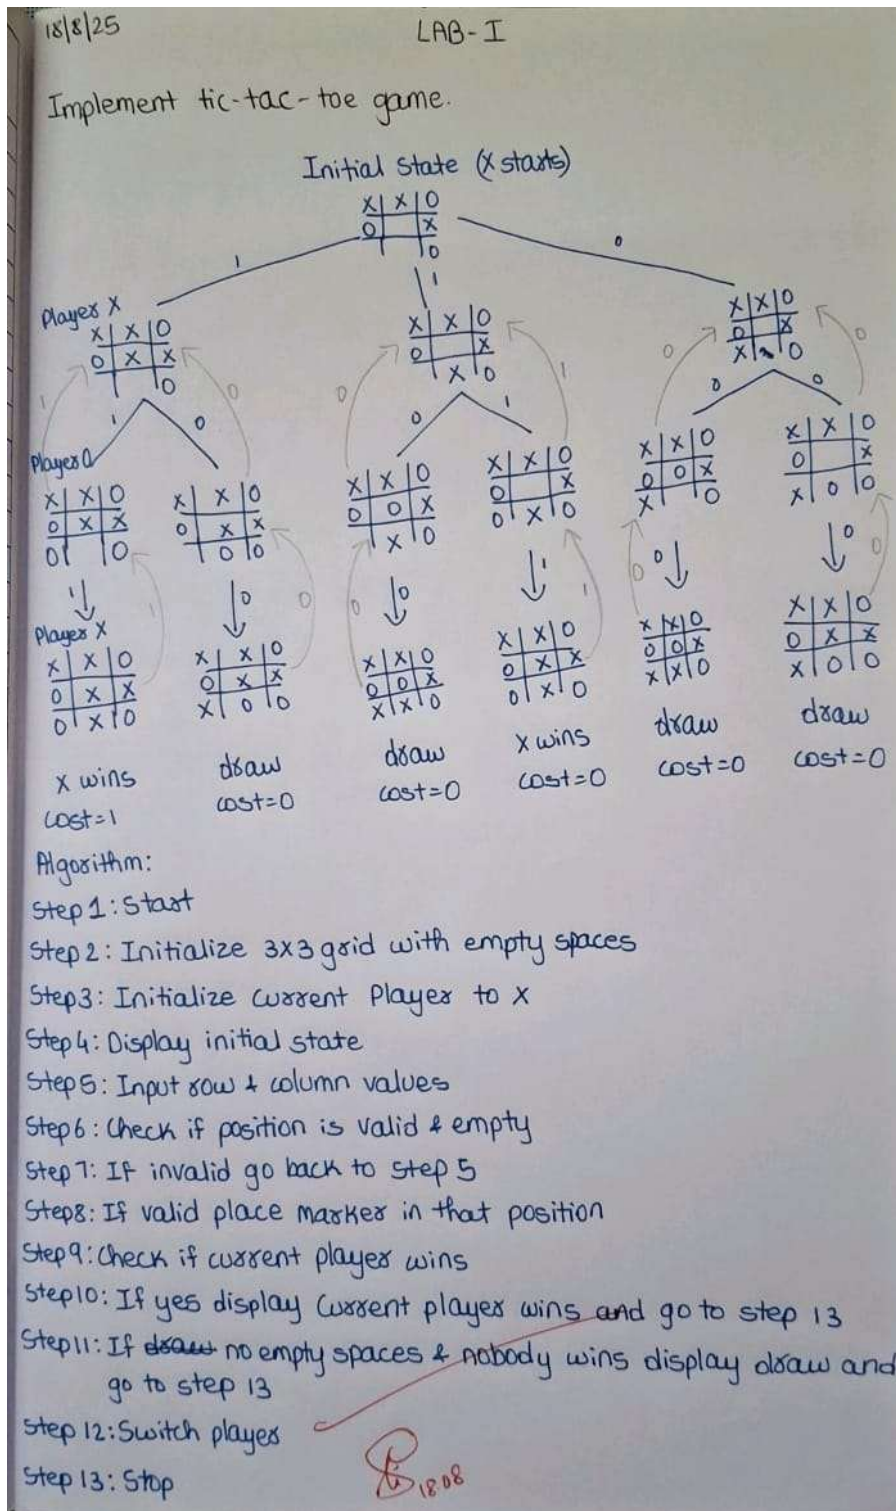 18/8/25
LAB-I
Implement tic-tac-toe game.
Initial State (X starts)
X|X|O
O| |X
| |O
1
1
0
Player X
X|X|O
O|X|X
| |O
X|X|O
O| |X
|X|O
X|X|O
O| |X
X| |O
1 1 0 0
0 0 1 1
0 0 0 0
Player O
X|X|O
O|X|X
O| |O
X|X|O
O|X|X
|O|O
X|X|O
O|O|X
|X|O
X|X|O
O| |X
O|X|O
X|X|O
O|O|X
X| |O
X|X|O
O| |X
X|O|O
1 1 0 0 0 0 1 1 0 0 0 0
Player X
X|X|O
O|X|X
O|X|O
X|X|O
O|X|X
X|O|O
X|X|O
O|O|X
X|X|O
X|X|O
O|X|X
O|X|O
X|X|O
O|O|X
X|X|O
X|X|O
O|X|X
X|O|O
X wins
cost=1
draw
cost=0
draw
cost=0
X wins
cost=0
draw
cost=0
draw
cost=0
Algorithm:
Step 1: Start
Step 2: Initialize 3X3 grid with empty spaces
Step3: Initialize current Player to X
Step4: Display initial state
Step5: Input row & column values
Step6: Check if position is valid & empty
Step7: If invalid go back to step 5
Step8: If valid place marker in that position
Step9: Check if current player wins
Step10: If yes display current player wins and go to step 13
Step11: If draw no empty spaces & nobody wins display draw and
go to step 13
Step 12: Switch player
Step 13: Stop
18.08